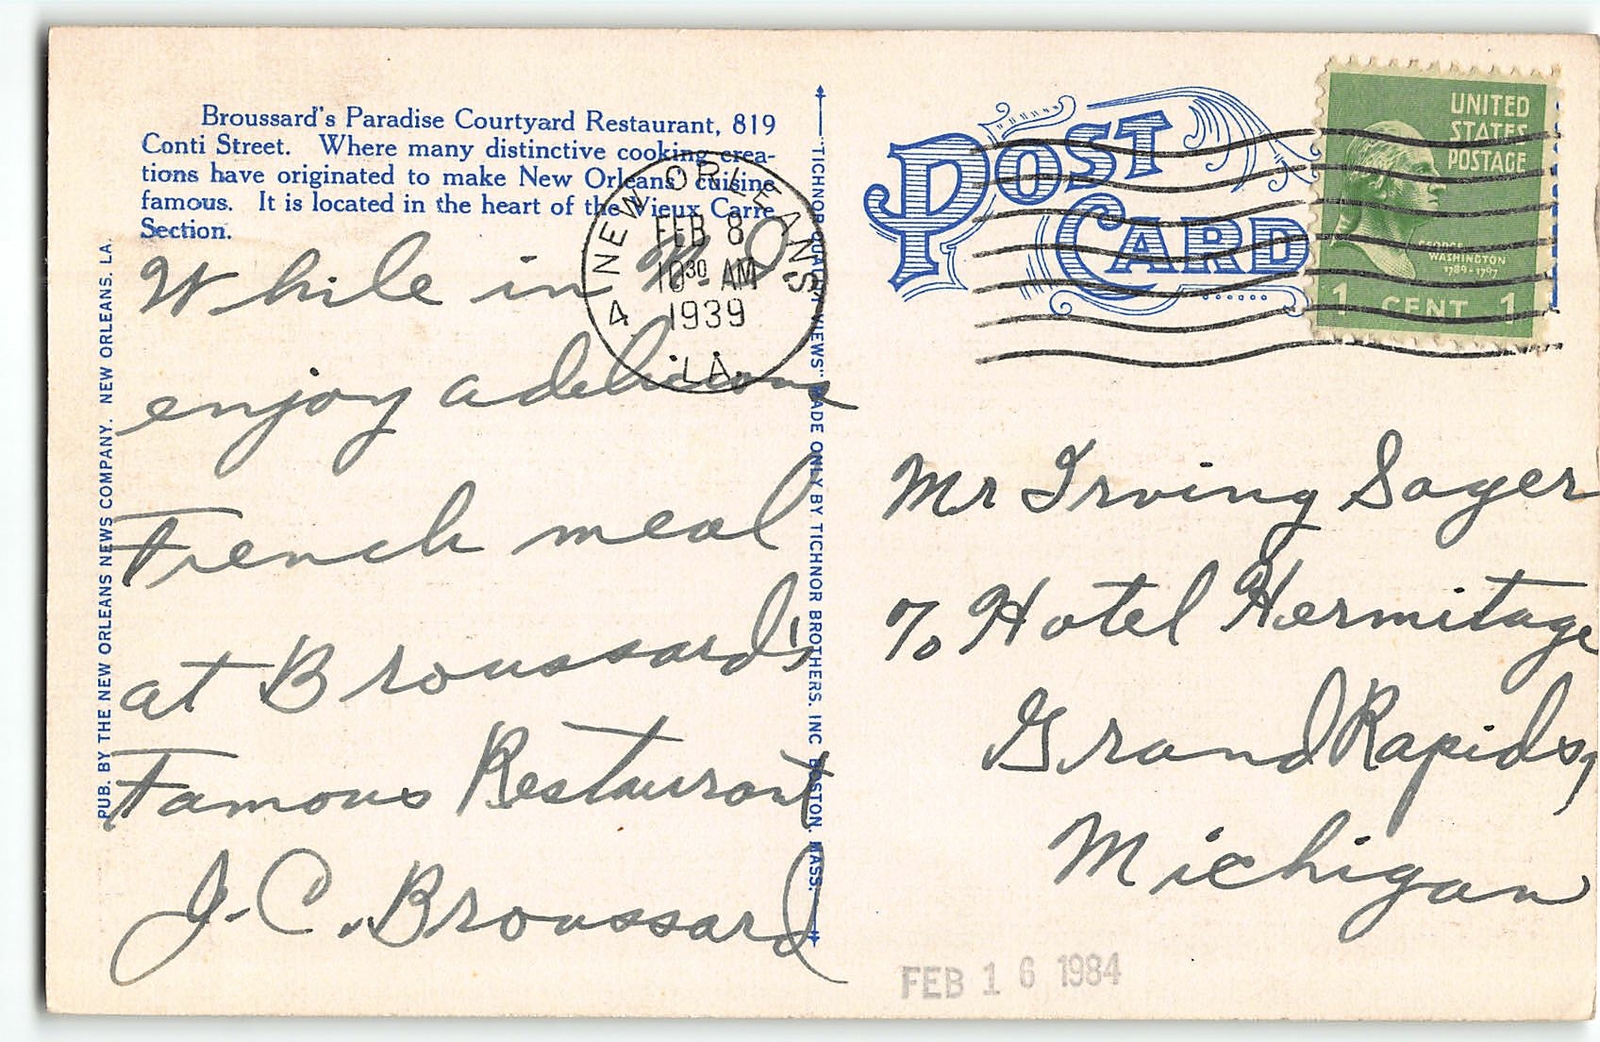 Broussard's Paradise Courtyard Restaurant, 819
Conti Street. Where many distinctive cooking crea-
tions have originated to make New Orleans' cuisine
famous. It is located in the heart of the Vieux Carre
Section.
While in N.O.
enjoy a delicious
French meal
at Broussard's
Famous Restaurant
J.C. Broussard
PUB. BY THE NEW ORLEANS NEWS COMPANY. NEW ORLEANS. LA.
"TICHNOR QUALITY VIEWS" MADE ONLY BY TICHNOR BROTHERS, INC BOSTON, MASS.
NEW ORLEANS
FEB 8
10 30 AM
1939
4
LA.
POST
CARD
UNITED
STATES
POSTAGE
GEORGE
WASHINGTON
1789-1797
1 CENT 1
Mr Irving Sayer
% Hotel Hermitage
Grand Rapids,
Michigan
FEB 16 1984